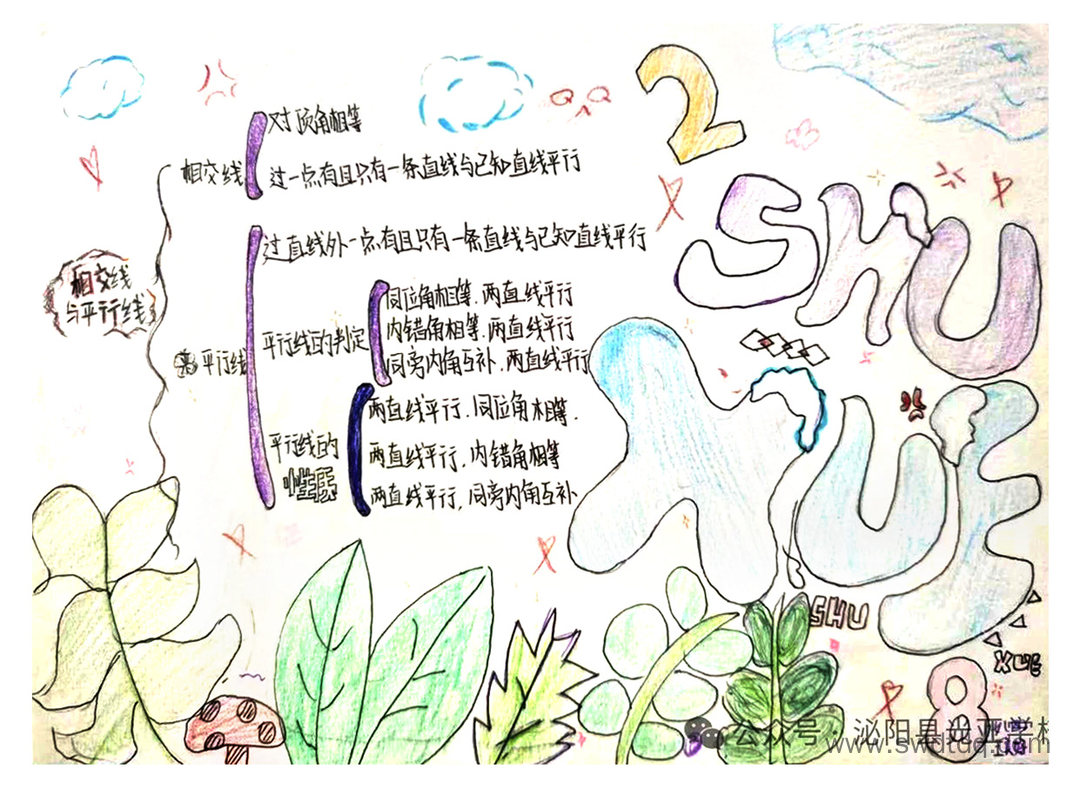 2
SHU
XUE
对顶角相等
相交线
过一点有且只有一条直线与已知直线平行
过直线外一点有且只有一条直线与已知直线平行
相交线
与平行线
同位角相等.两直线平行
内错角相等.两直线平行
同旁内角互补.两直线平行
平行线的判定
平行线
两直线平行.同位角相等.
平行线的
性质
两直线平行,内错角相等
两直线平行,同旁内角互补
SHU
XUE
8
公众号·泌阳县
www.swdtdq.com